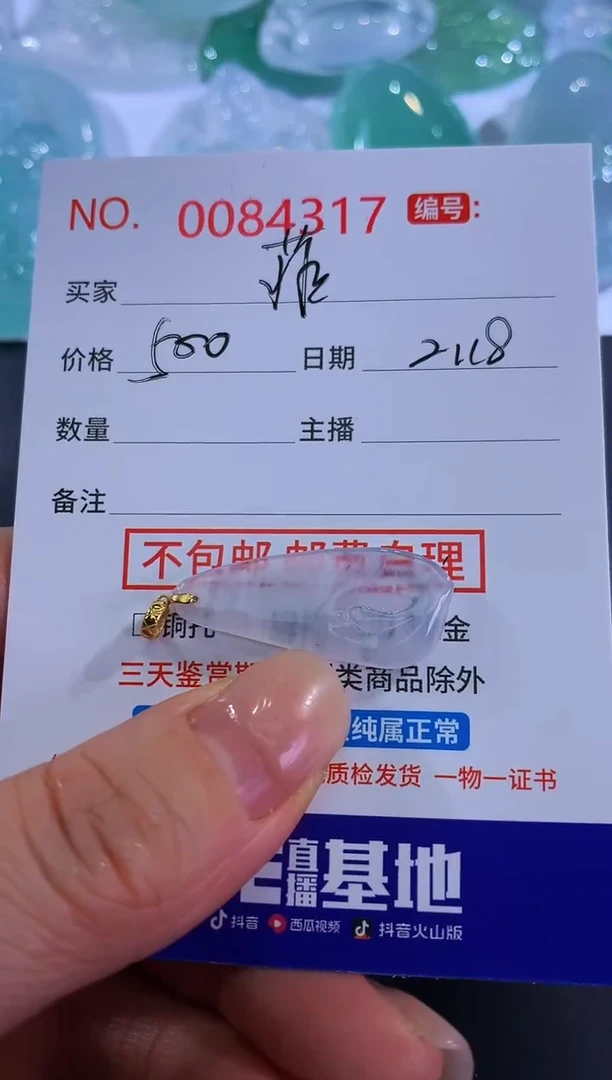 NO. 0084317 编号:
买家
价格 500 日期 2118
数量 主播
备注
不包邮 邮费自理
铜托 金
三天鉴赏期 类商品除外
纯属正常
质检发货 一物一证书
直播基地
抖音 西瓜视频 抖音火山版